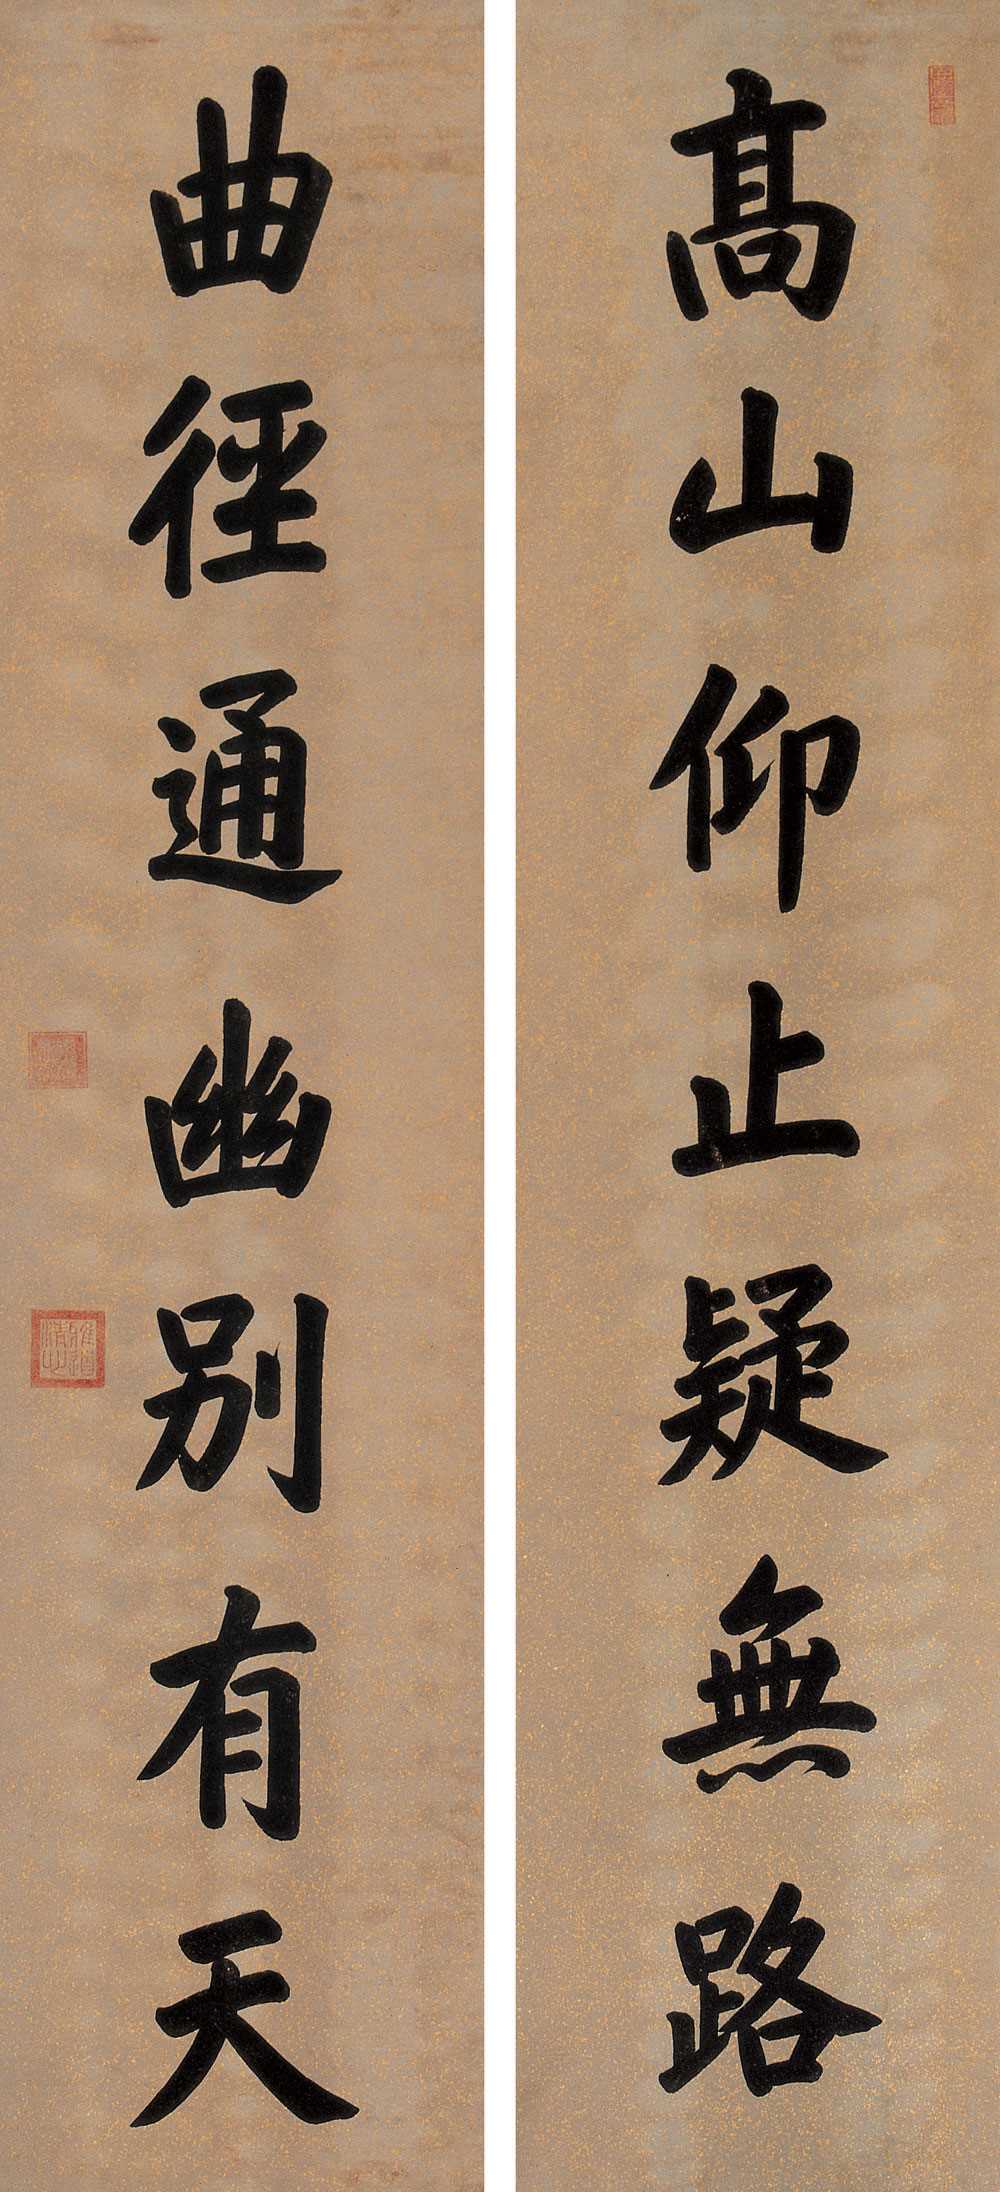 髙山仰止疑無路
曲徑通幽别有天